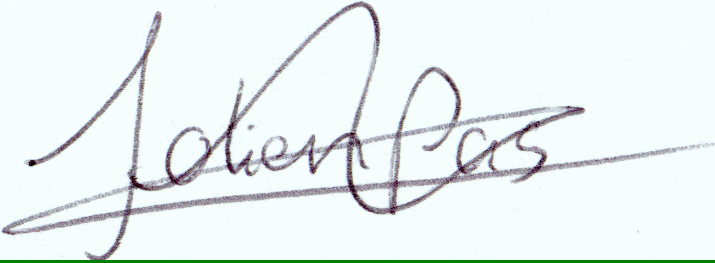 Jolien Pas